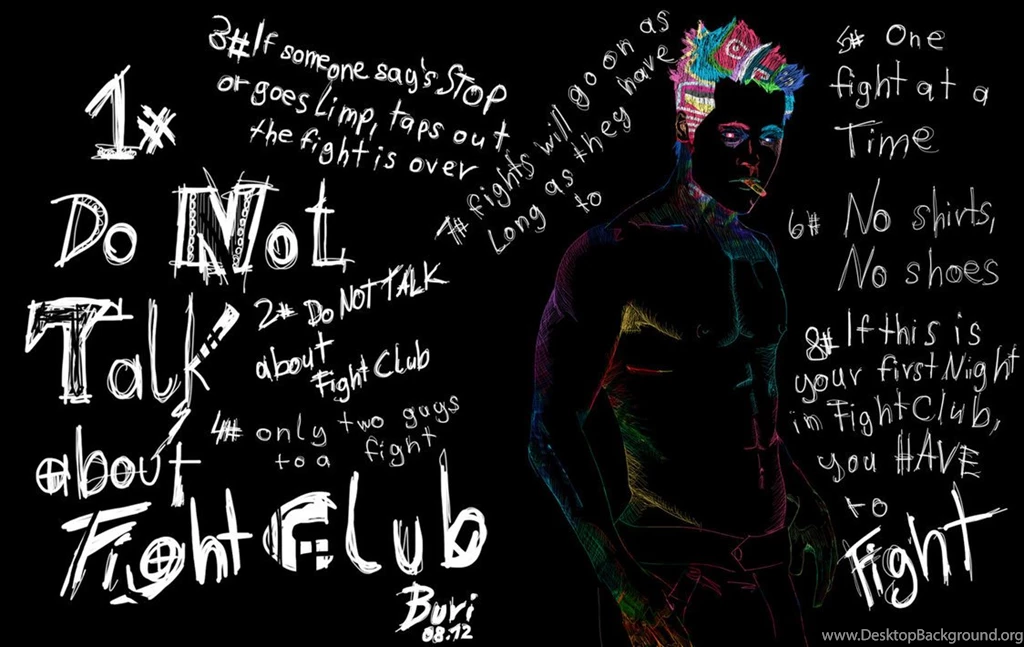 1#
Do Not
Talk
about
Fight Club
2# Do NOT TALK
about
Fight Club
3# If someone say's STOP
or goes Limp, taps out
the fight is over
4# only two guys
to a fight
5# One
fight at a
Time
6# No shirts,
No shoes
7# fights will go on as
Long as they have
to
8# If this is
your first Night
in Fight Club,
you HAVE
to
Fight
Buri
08.12
www.DesktopBackground.org